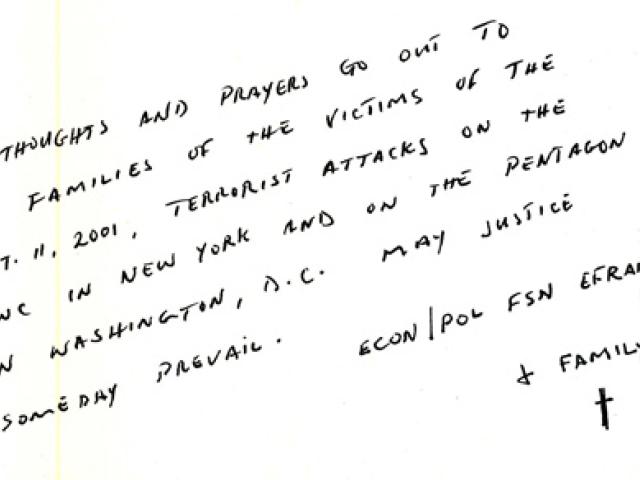 THOUGHTS AND PRAYERS GO OUT TO
FAMILIES OF THE VICTIMS OF THE
T. 11, 2001, TERRORIST ATTACKS ON THE
NC IN NEW YORK AND ON THE PENTAGON
N WASHINGTON, D.C. MAY JUSTICE
SOMEDAY PREVAIL. ECON/POL FSN EFRA
& FAMILY